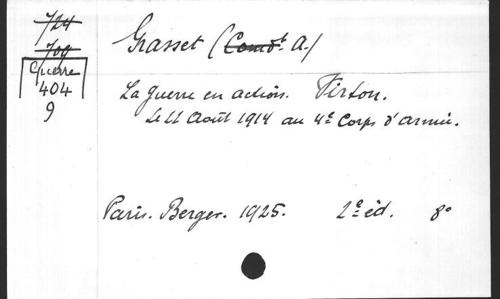 724
709
Guerre
404
9
Grasset (Comdt A.)
La guerre en action. Virton.
Le 22 Août 1914 au 4e Corps d'Armée.
Paris. Berger. 1925. 2e éd. 8°